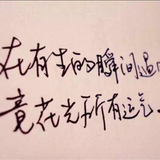 在有生的瞬间遇
竟花光所有运气